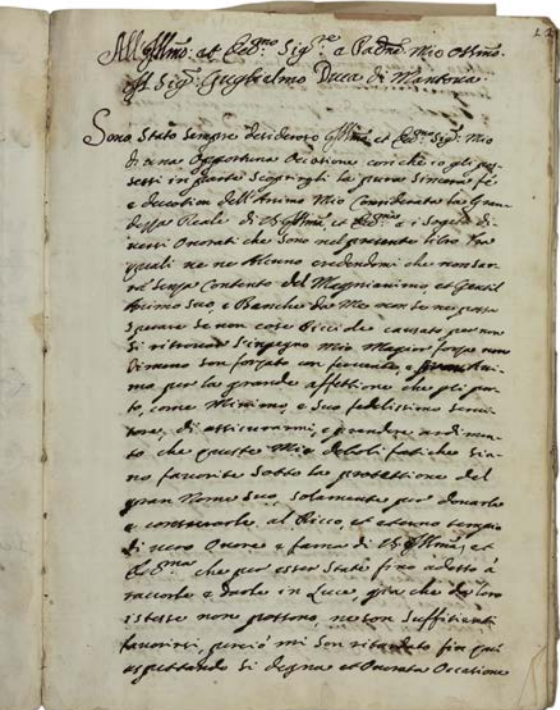 All'Ill.mo et Ecc.mo Sig.re e Padne Mio Oss.mo
Il Sig.r Guglielmo Duca di Mantova
Sono Stato Sempre desideroso Ill.mo et Ecc.mo Sig.r Mio
di una Opportuna Occasione con che io gli po-
tessi in parte Scoprirgli la pura Sincera fé
e devotion dell'Animo Mio Considerata la Gran-
dezza Reale di V. Ill.ma et Ecc.ma e i Sogetti di-
versi Onorati che sono nel presente libro tra
quali ve ne Alcuno credendomi che non sar-
rà Senza Contento del Magnianimo, et Gentil
Animo Suo, e Benche da Me non se ne possa
Sperare se non cose Picciole causato per non
Si ritrovar l'ingegno Mio Magior forza non
Dimeno son forzato con fervente, e Ani-
mo per la grande affettione che gli por-
to, come Minimo, e Suo fedelissimo servi-
tore, di assicurarmi, e prendere ardimen-
to che queste Mie deboli fatiche sia-
no favorite Sotto la protettione del
gran Nome Suo, Solamente per donarle
e consecrarle al Ricco, et eterno tempio
di vero Onore e fama di V. Ill.ma et
Ecc.ma che per esser State fino adesso à
raccorle e darle in Luce, già che da loro
istesse non possono, ne son Sufficienti
favorirsi, perciò mi Son ritardato fin quì
aspettando Si degna et Onorata Occasione